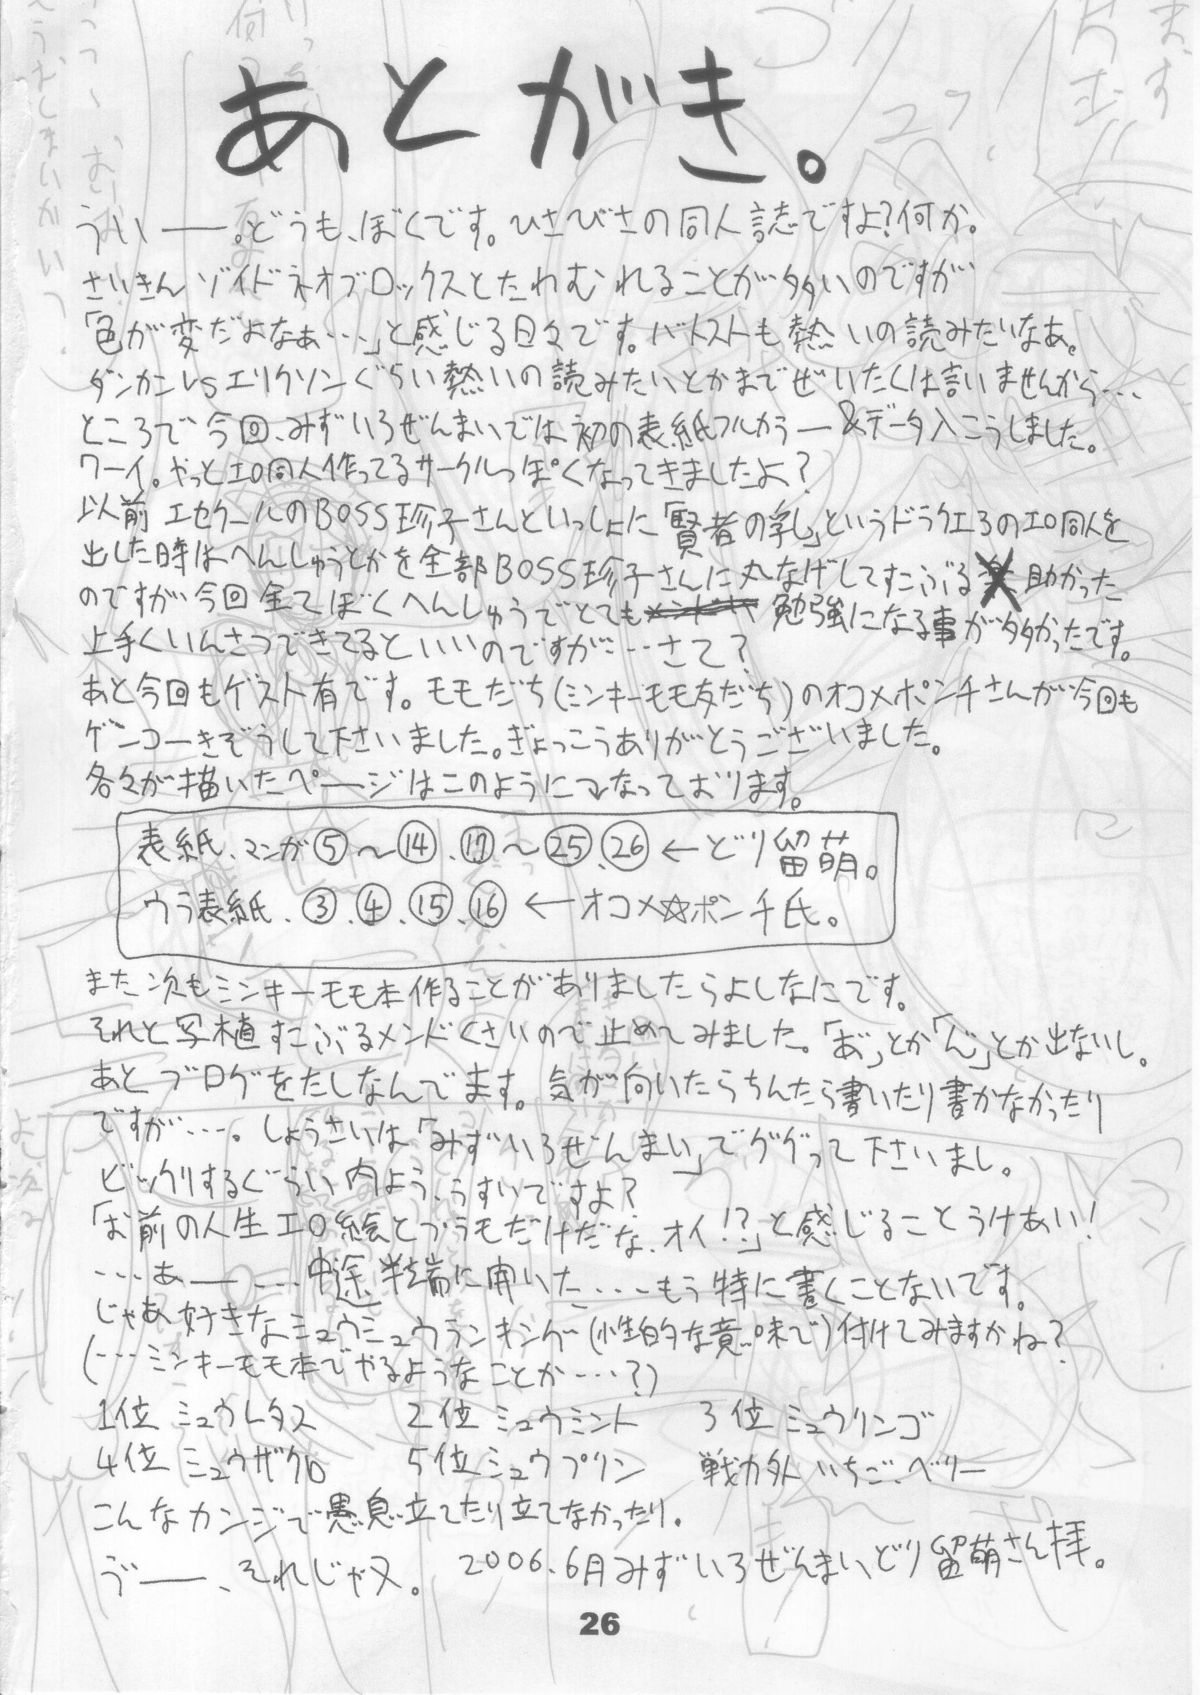 あとがき。
うい――。どうも、ぼくです。ひさびさの同人誌ですよ?何か。
さいきんゾイドネオブロックスとたわむれることが多いのですが
「色が変だよなぁ…」と感じる日々です。バトストも熱いの読みたいなあ。
ダンカンvsエリクソンぐらい熱いの読みたいとかまでぜいたくは言いませんから…
ところで今回、みずいろぜんまいでは初の表紙フルカラー&データ入こうしました。
ワーイ。やっとエロ同人作ってるサークルっぽくなってきましたよ?
以前エセクールのBOSS珍子さんといっしょに「賢者の乳」というドラクエ3のエロ同人を
出した時はへんしゅうとかを全部BOSS珍子さんに丸なげしてすこぶる助かった
のですが今回全てぼくへんしゅうでとても勉強になる事が多かったです。
上手くいんさつできてるといいのですが……さて?
あと今回もゲスト有です。モモだち(ミンキーモモ友だち)のオコメポンチさんが今回も
ゲンコーきぞうして下さいました。ぎょっこうありがとうございました。
各々が描いたページはこのように↴なっております。
表紙、マンガ⑤〜⑭、⑰〜㉕、㉖←どり留萌。
ウラ表紙、③、④、⑮、⑯←オコメ☆ポンチ氏。
また次もミンキーモモ本作ることがありましたらよしなにです。
それと写植すこぶるメンドくさいので止めてみました。「あ゛」とか「ん゛」とか出ないし。
あとブログをたしなんでます。気が向いたらちんたら書いたり書かなかったり
ですが…。しょうさいは「みずいろぜんまい」でググって下さいまし。
ビックリするぐらい内よう、うすいですよ?
「お前の人生エロ絵とプラモだけだな、オイ!?」と感じることうけあい!
…あ――…中途半端に開いた…もう特に書くことないです。
じゃあ好きなミュウミュウランキング(性的な意味で)付けてみますかね?
(…ミンキーモモ本でやるようなことか…?)
1位 ミュウレタス 2位 ミュウミント 3位 ミュウリンゴ
4位 ミュウザクロ 5位 ミュウプリン 戦力外 いちご、ベリー
こんなカンジで愚息立てたり立てなかったり。
ゔ――、それじゃ又。 2006.6月みずいろぜんまい、どり留萌さん拝。
26